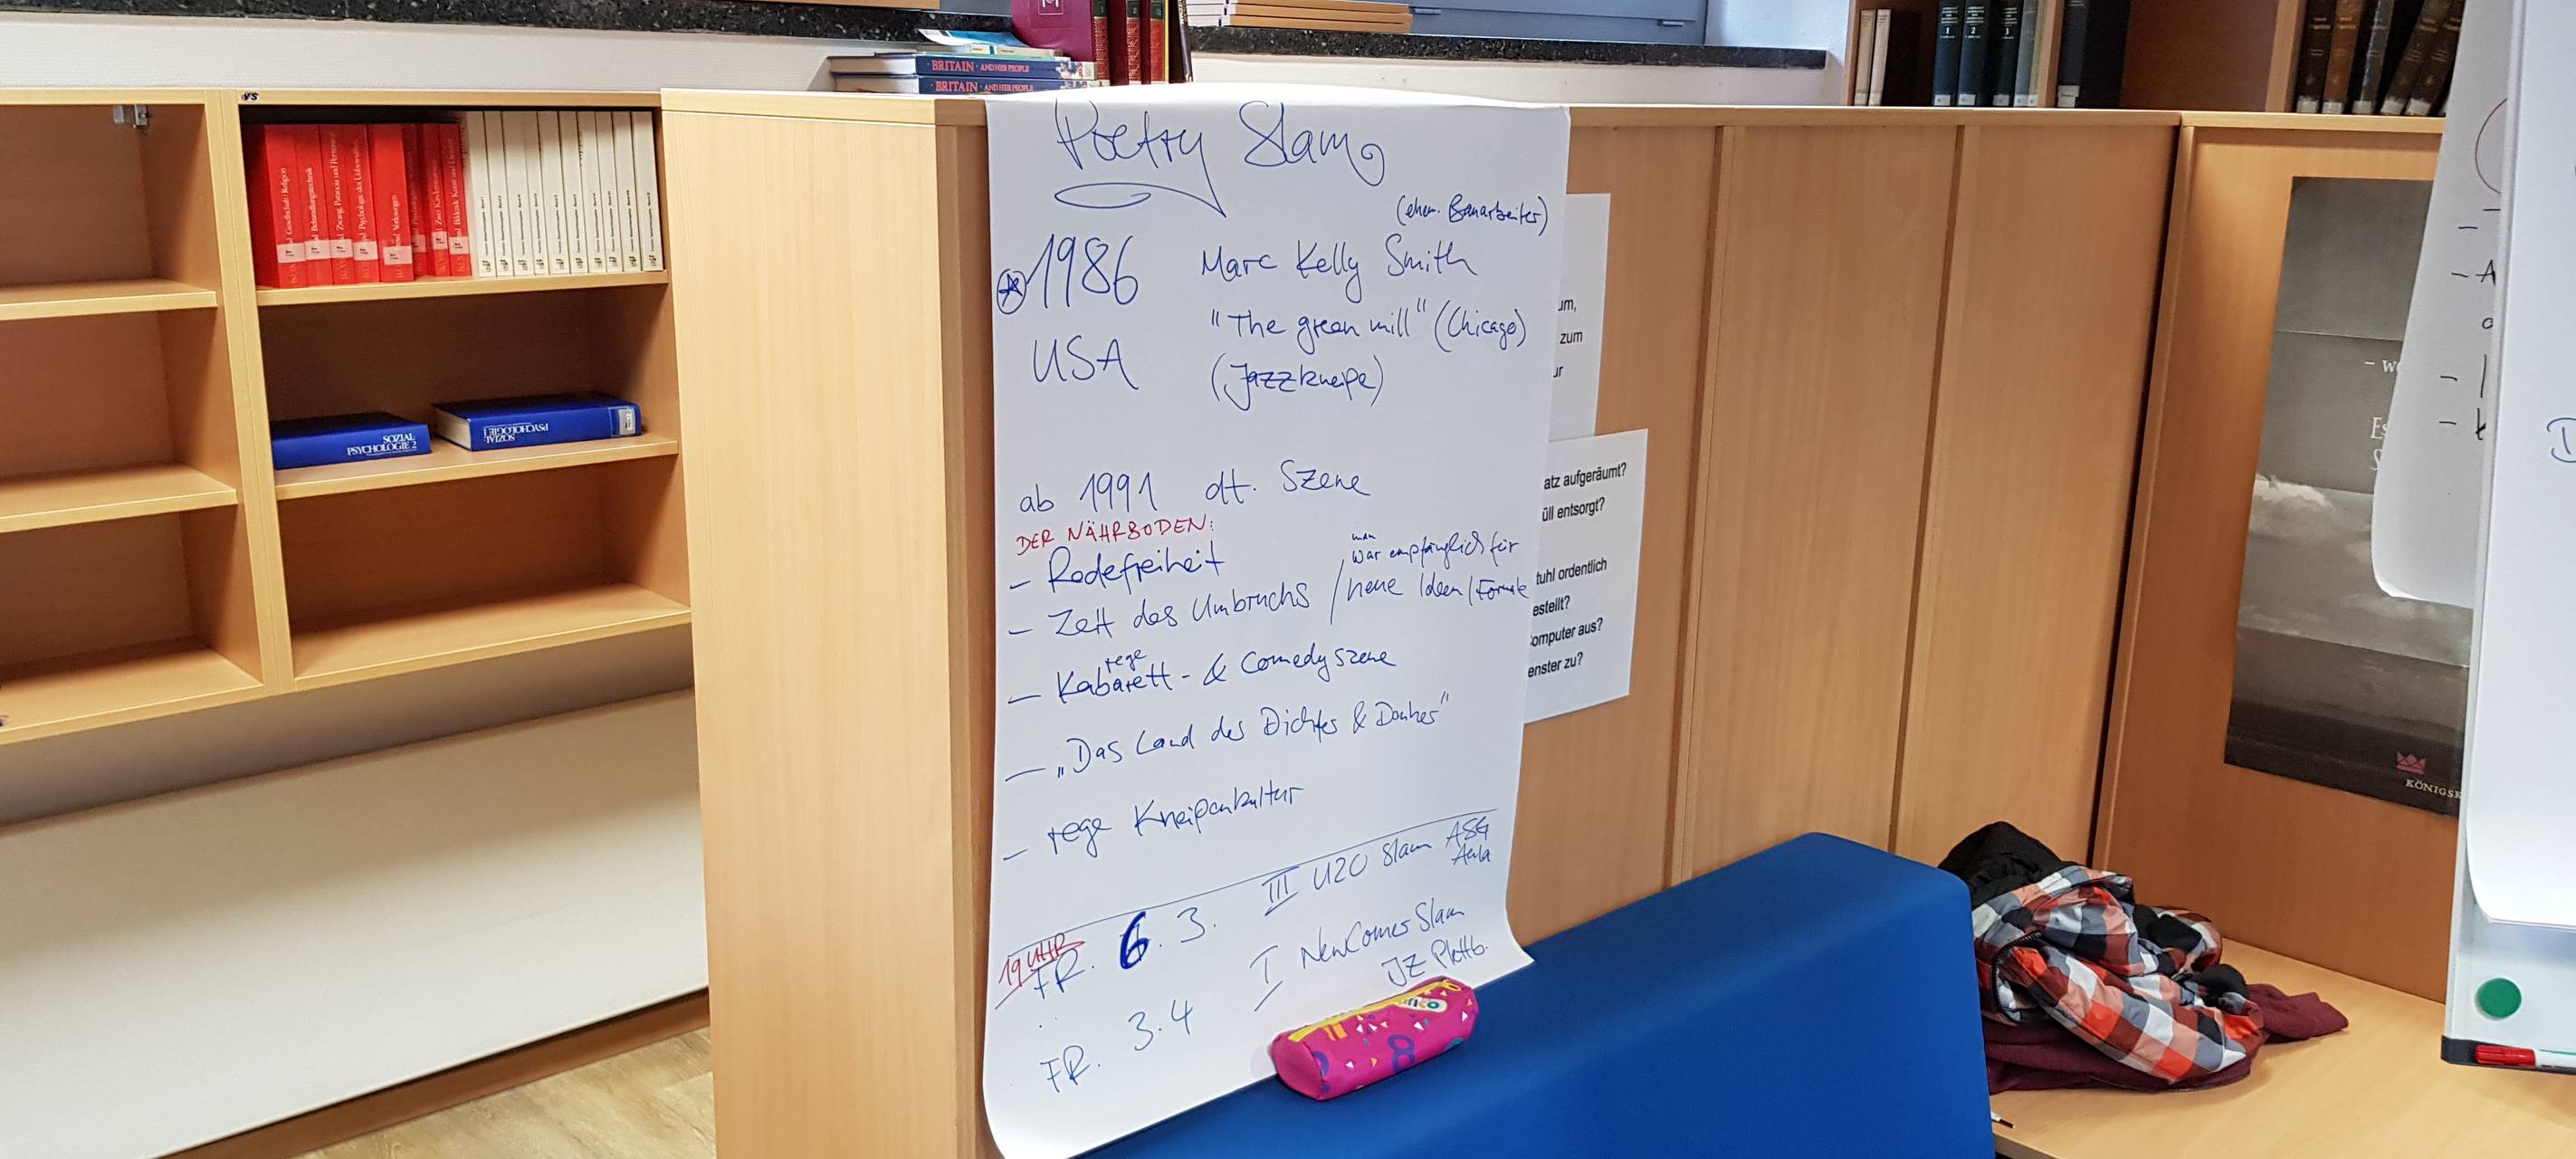 BRITAIN AND HER PEOPLE
BRITAIN AND HER PEOPLE
VS
1
2
3
Gesellschaft / Religion
Behandlungstechnik
SOZIAL-
PSYCHOLOGIE 2
SOZIAL
PSYCHOLOGIE 1
Poetry Slam
(ehem. Bauarbeiter)
1986 Marc Kelly Smith
"The green mill" (Chicago)
USA (Jazzkneipe)
ab 1991 dt. Szene
DER NÄHRBODEN:
- Redefreiheit
- Zeit des Umbruchs / man war empfänglich für neue Ideen / Formate
- rege Kabarett- & Comedyszene
- „Das Land der Dichter & Denker"
- rege Kneipenkultur
19 UHR
FR. 6. 3. III U20 Slam ASG
Aula
FR. 3.4 I NewComer Slam
JZ Plettb.
um,
zum
ur
atz aufgeräumt?
üll entsorgt?
tuhl ordentlich
estellt?
omputer aus?
enster zu?
- w
Es
S
KÖNIGS
- A